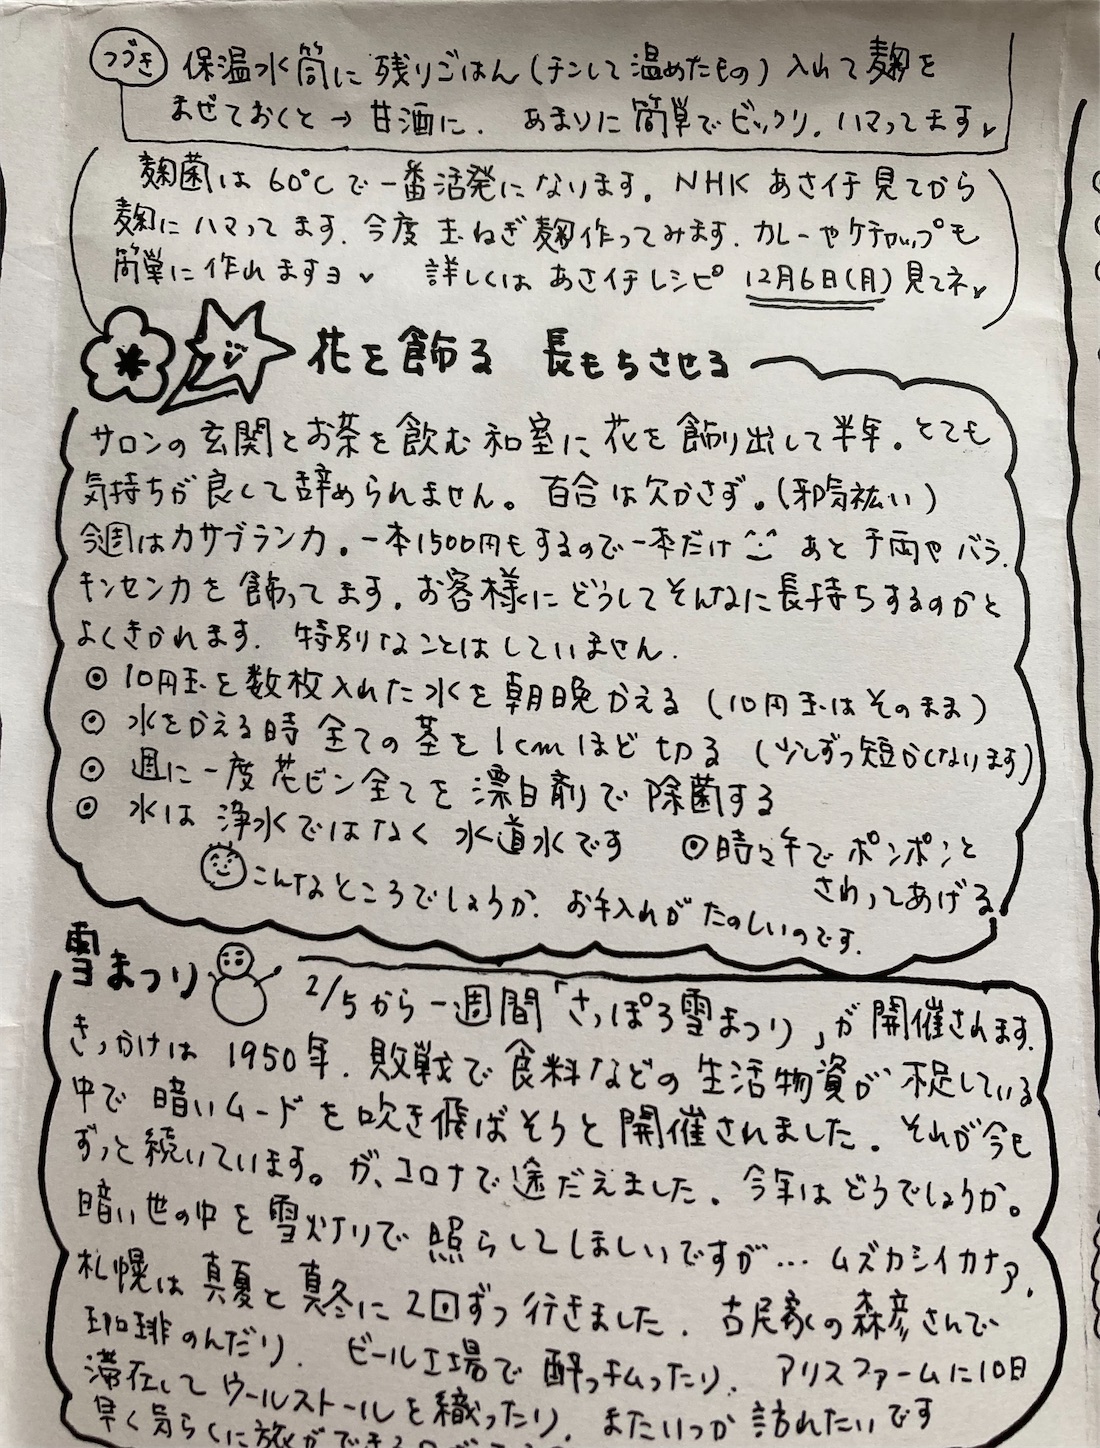 つづき 保温水筒に残りごはん(チンして温めたもの)入れて麹を
まぜておくと→甘酒に. あまりに簡単でビックリ. ハマってます
麹菌は60℃で一番活発になります. NHK あさイチ見てから
麹にハマってます. 今度玉ねぎ麹作ってみます. カレーやケチャップも
簡単に作れますヨ 詳しくはあさイチレシピ 12月6日(月)見てネ
花を飾る 長もちさせる
サロンの玄関とお茶を飲む和室に花を飾り出して半年。とても
気持ちが良くて辞められません。百合は欠かさず。(邪気祓い)
今週はカサブランカ。一本1500円もするので一本だけ あと千両やバラ.
キンセンカを飾ってます. お客様にどうしてそんなに長持ちするのかと
よくきかれます. 特別なことはしていません.
◎10円玉を数枚入れた水を朝晩かえる(10円玉はそのまま)
◎水をかえる時全ての茎を1cmほど切る(少しずつ短かくなります)
◎週に一度花ビン全てを漂白剤で除菌する
◎水は浄水ではなく水道水です ◎時々手でポンポンと
さわってあげる
こんなところでしょうか. お手入れがたのしいのです.
雪まつり
2/5から一週間「さっぽろ雪まつり」が開催されます.
きっかけは1950年. 敗戦で食料などの生活物資が不足している
中で暗いムードを吹き飛ばそうと開催されました. それが今も
ずっと続いています。が、コロナで途だえました. 今年はどうでしょうか。
暗い世の中を雪灯りで照らしてほしいですが… ムズカシイカナァ.
札幌は真夏と真冬に2回ずつ行きました. 古民家の森彦さんで
珈琲のんだり. ビール工場で酔っ払ったり. アリスファームに10日
滞在してウールストールを織ったり. またいつか訪れたいです
早く気らくに旅ができる